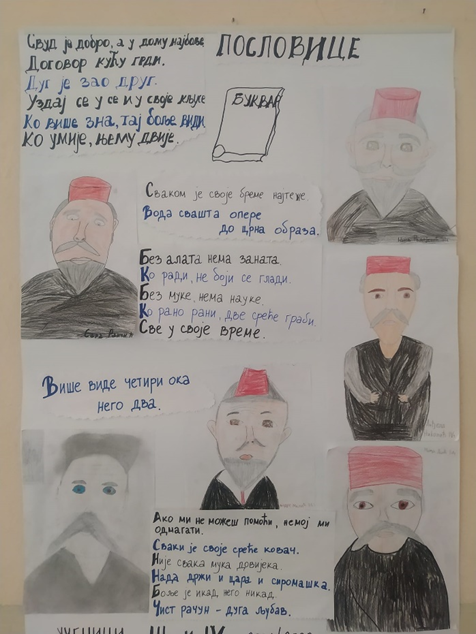 ПОСЛОВИЦЕ
Свуд је добро, а у дому најбоље
Договор кућу гради.
Дуг је зао друг.
Уздај се у се и у своје кљусе
Ко више зна, тај боље види
Ко умије, њему двије.
БУКВАР
Сваком је своје бреме најтеже
Вода свашта опере
до црна образа.
Без алата нема заната.
Ко ради, не боји се глади.
Без муке, нема науке.
Ко рано рани, две среће граби.
Све у своје време.
Више виде четири ока
него два.
Ако ми не можеш помоћи, немој ми
одмагати.
Сваки је своје среће ковач.
Није свака мука довијека.
Нада држи и цара и сиромашка.
Боље је икад, него никад.
Чист рачун - дуга љубав.
УЧЕНИЦИ III и IV